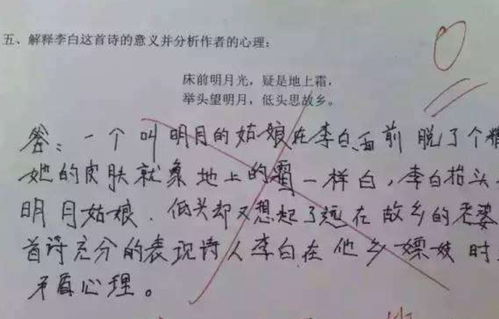 五、解释李白这首诗的意义并分析作者的心理:
床前明月光，疑是地上霜，
举头望明月，低头思故乡。
答：一个叫明月的姑娘在李白面前脱了个
她的皮肤就象地上的霜一样白，李白抬头
明月姑娘．低头却又想起了远在故乡的老婆
首诗充分的表现诗人李白在他乡嫖妓时
矛盾心理。
0